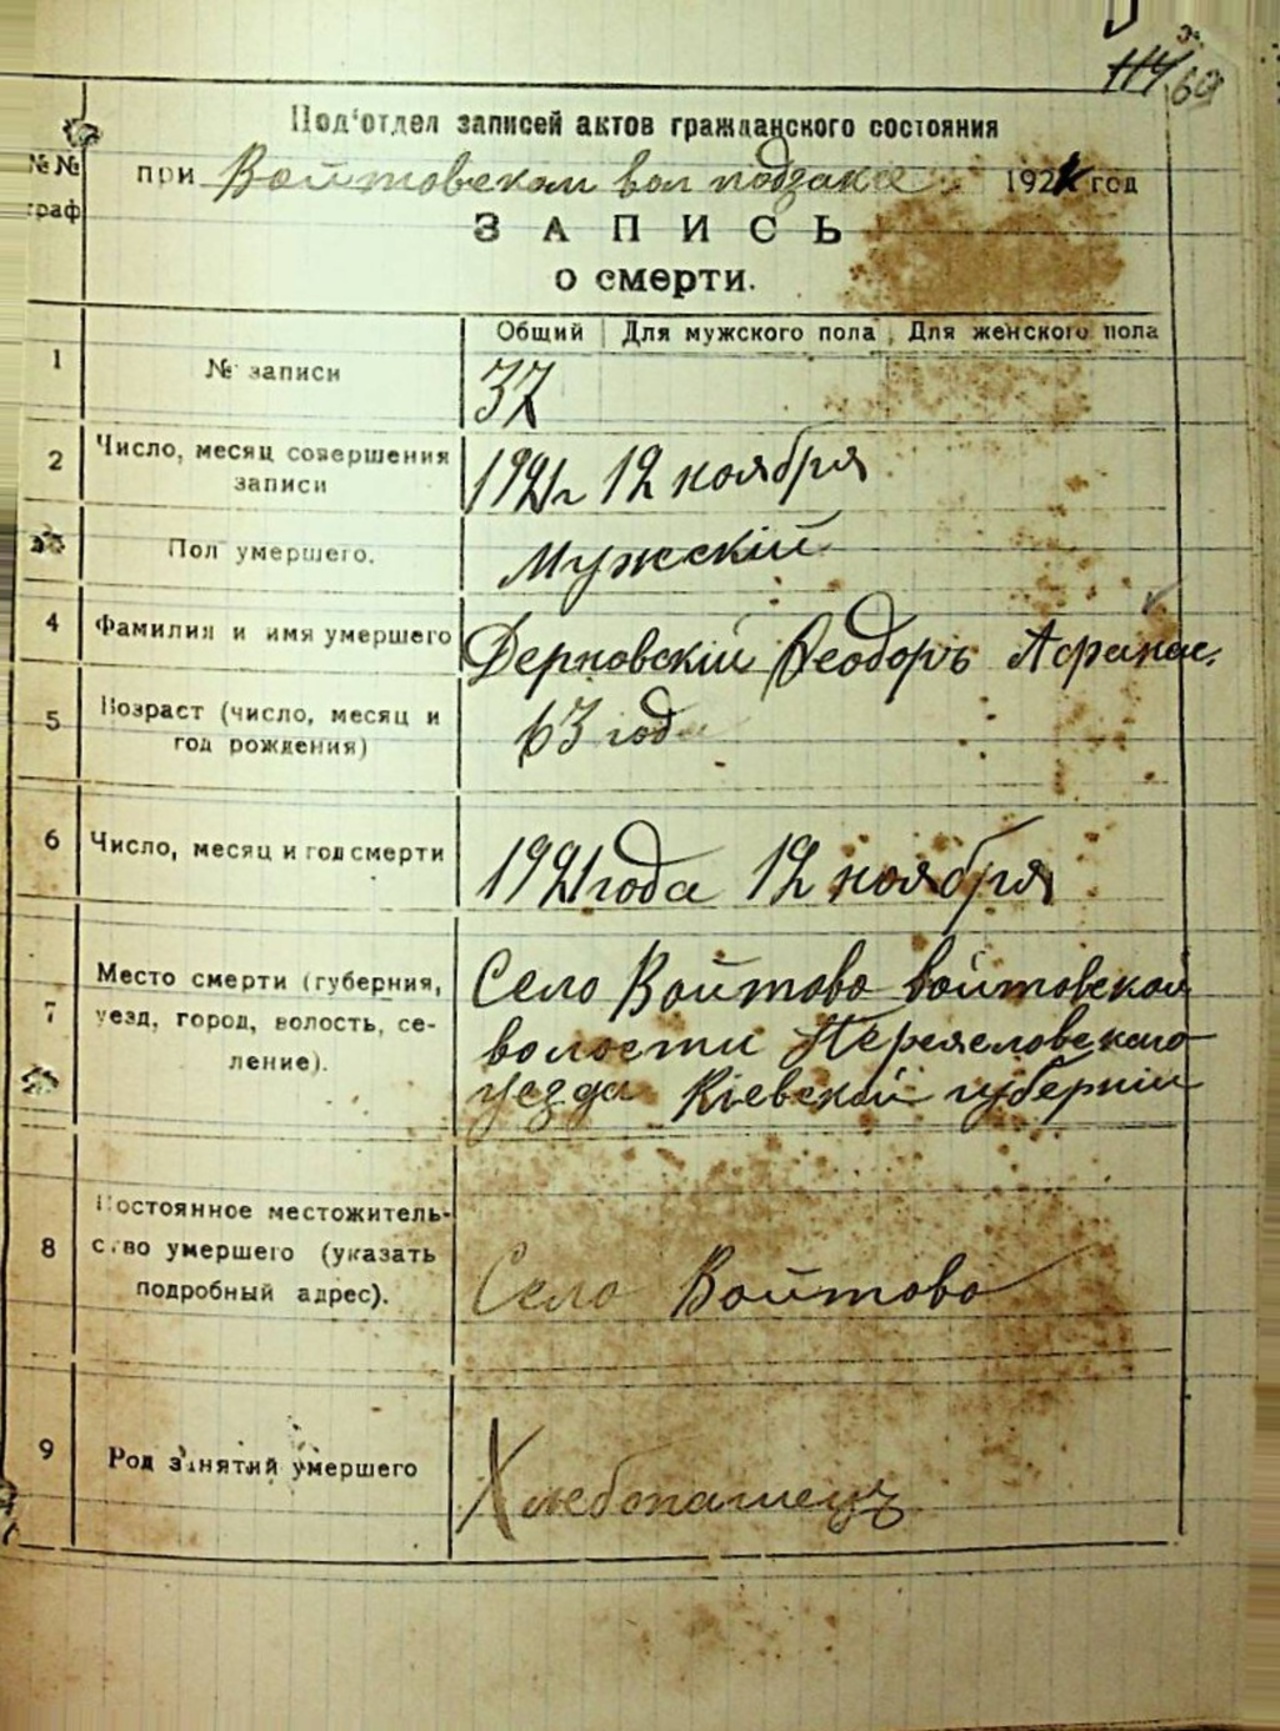 114/69
Под'отдел записей актов гражданского состояния
№№ граф
при Войтовском вол подзаксе 1921 год
ЗАПИСЬ
о смерти.
Общий Для мужского пола Для женского пола
1 № записи 37
2 Число, месяц совершения
записи
1921 г 12 ноября
Пол умершего. Мужскій
4 Фамилия и имя умершего Дерновскій Феодоръ Афанас.
5 Возраст (число, месяц и
год рождения)
63 года
6 Число, месяц и год смерти 1921 года 12 ноября
7 Место смерти (губерния,
уезд, город, волость, се-
ление).
Село Войтово Войтовской
волости Переяславского
уезда Кіевской губерніи
8 Постоянное местожитель-
ство умершего (указать
подробный адрес).
Село Войтово
9 Род занятий умершего Хлебопашец